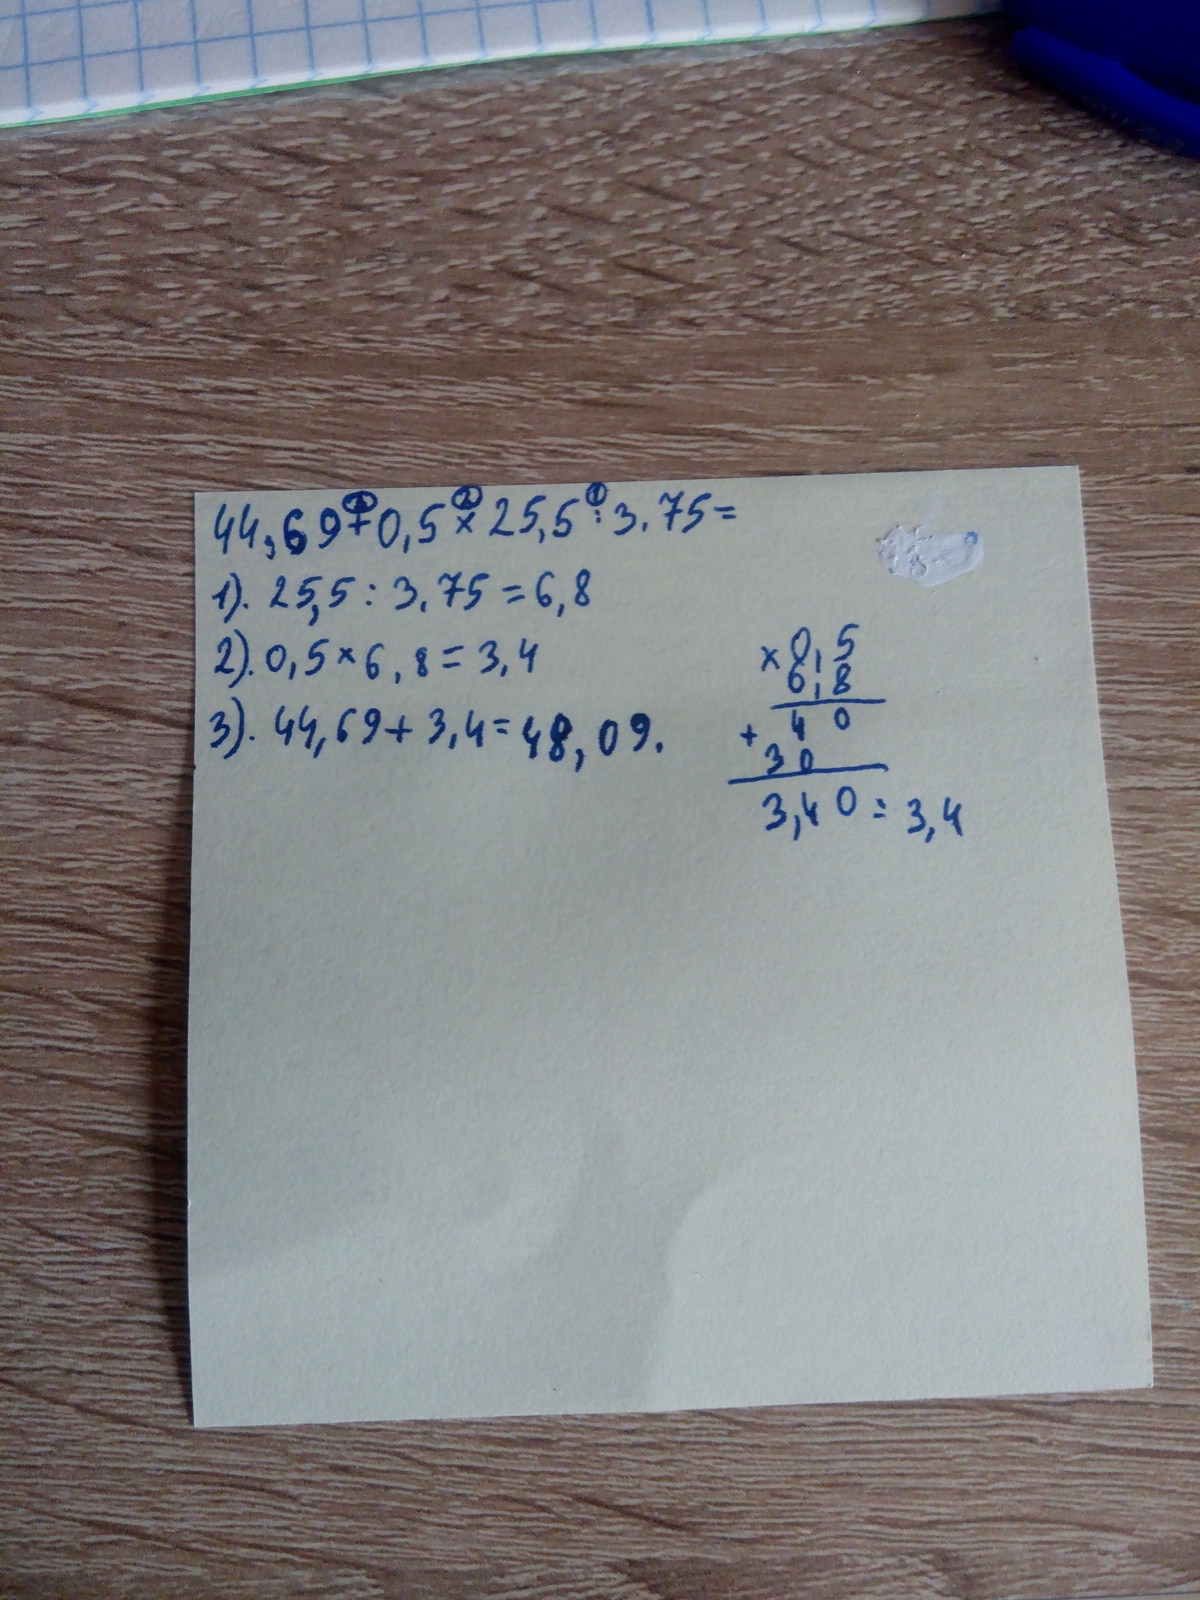 44,69+0,5×25,5:3,75=
1). 25,5 : 3,75 = 6,8
2). 0,5 × 6,8 = 3,4
3). 44,69 + 3,4 = 48,09.
× 0,5
6,8
+ 40
30
3,40 = 3,4